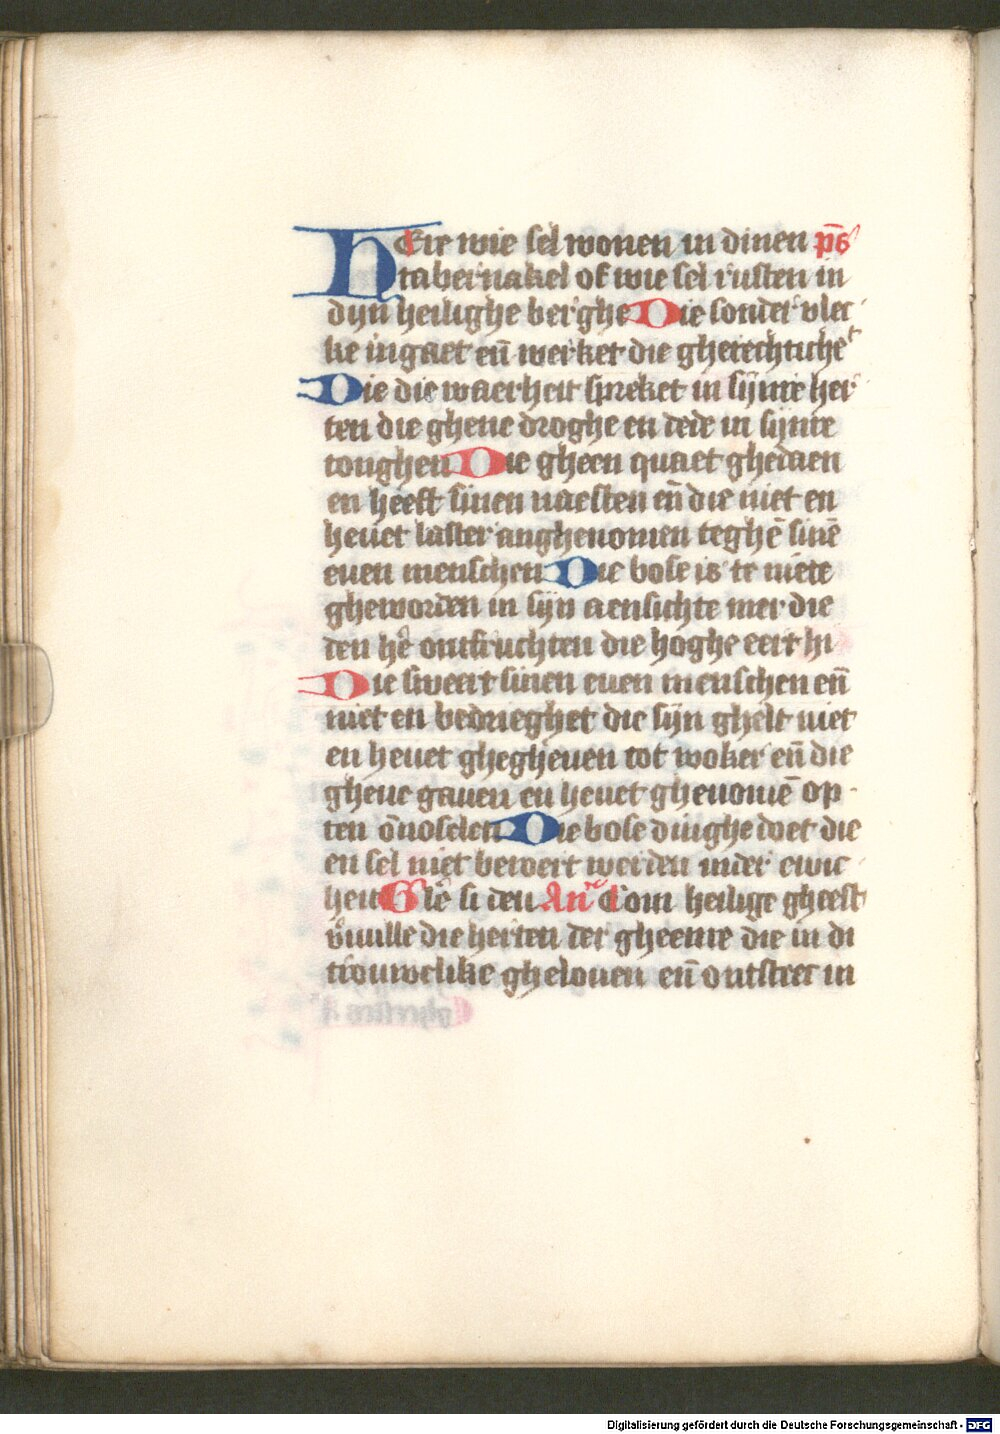 HEre wie sel wonen in dinen ps̄
tabernakel of wie sel rusten in
dijn heilighe berghe Die sonder vlec
ke ingaet en̄ werket die gherechtichet
Die die waerheit spreket in sijnre her
ten die ghene droghe en dede in sijnre
tonghen Die gheen quaet ghedaen
en heeft sinen naesten en̄ die niet en
hevet laster anghenomen teghē sinē
euen menschen Die bose is te niete
gheworden in sijn aensichte mer die
den hē ontfruchten die hoghe eert hi
Die sweert sinen euen menschen en̄
niet en bedrieghet die sijn ghelt niet
en heuet ghegheuen tot woker en̄ die
ghene gauen en heuet ghenomē op
ten ōnoselen Die bose dinghe doet die
en sel niet beroert werden inder ewic
heit Glē si den Anē Com heilige gheest
v̄uulle die herten der gheenre die in di
trouwelike ghelouen en̄ ontstect in
Digitalisierung gefördert durch die Deutsche Forschungsgemeinschaft - DFG